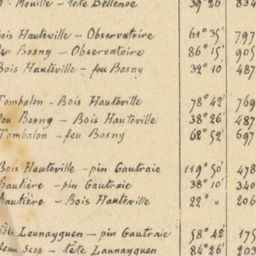 - Mouille - tête Bellevue 39° 26' 834
Bois Hauteville - Observatoire 61° 35' 797
feu Bosny - Observatoire 86° 15' 905
Bois Hauteville - feu Bosny 32° 10' 487
Tombolon - Bois Hauteville 78° 42' 769
feu Bosny - Bois Hauteville 38° 26' 487
Tombolon - feu Bosny 62° 52' 697
Bois Hauteville - pin Gautraie 119° 50' 478
Gautière - pin Gautraie 38° 10' 340
Gautière - Bois Hauteville 22° " 206
tête Launayguen - pin Gautraie 58° 42' 175
- tête Launayguen 84° 26' 203